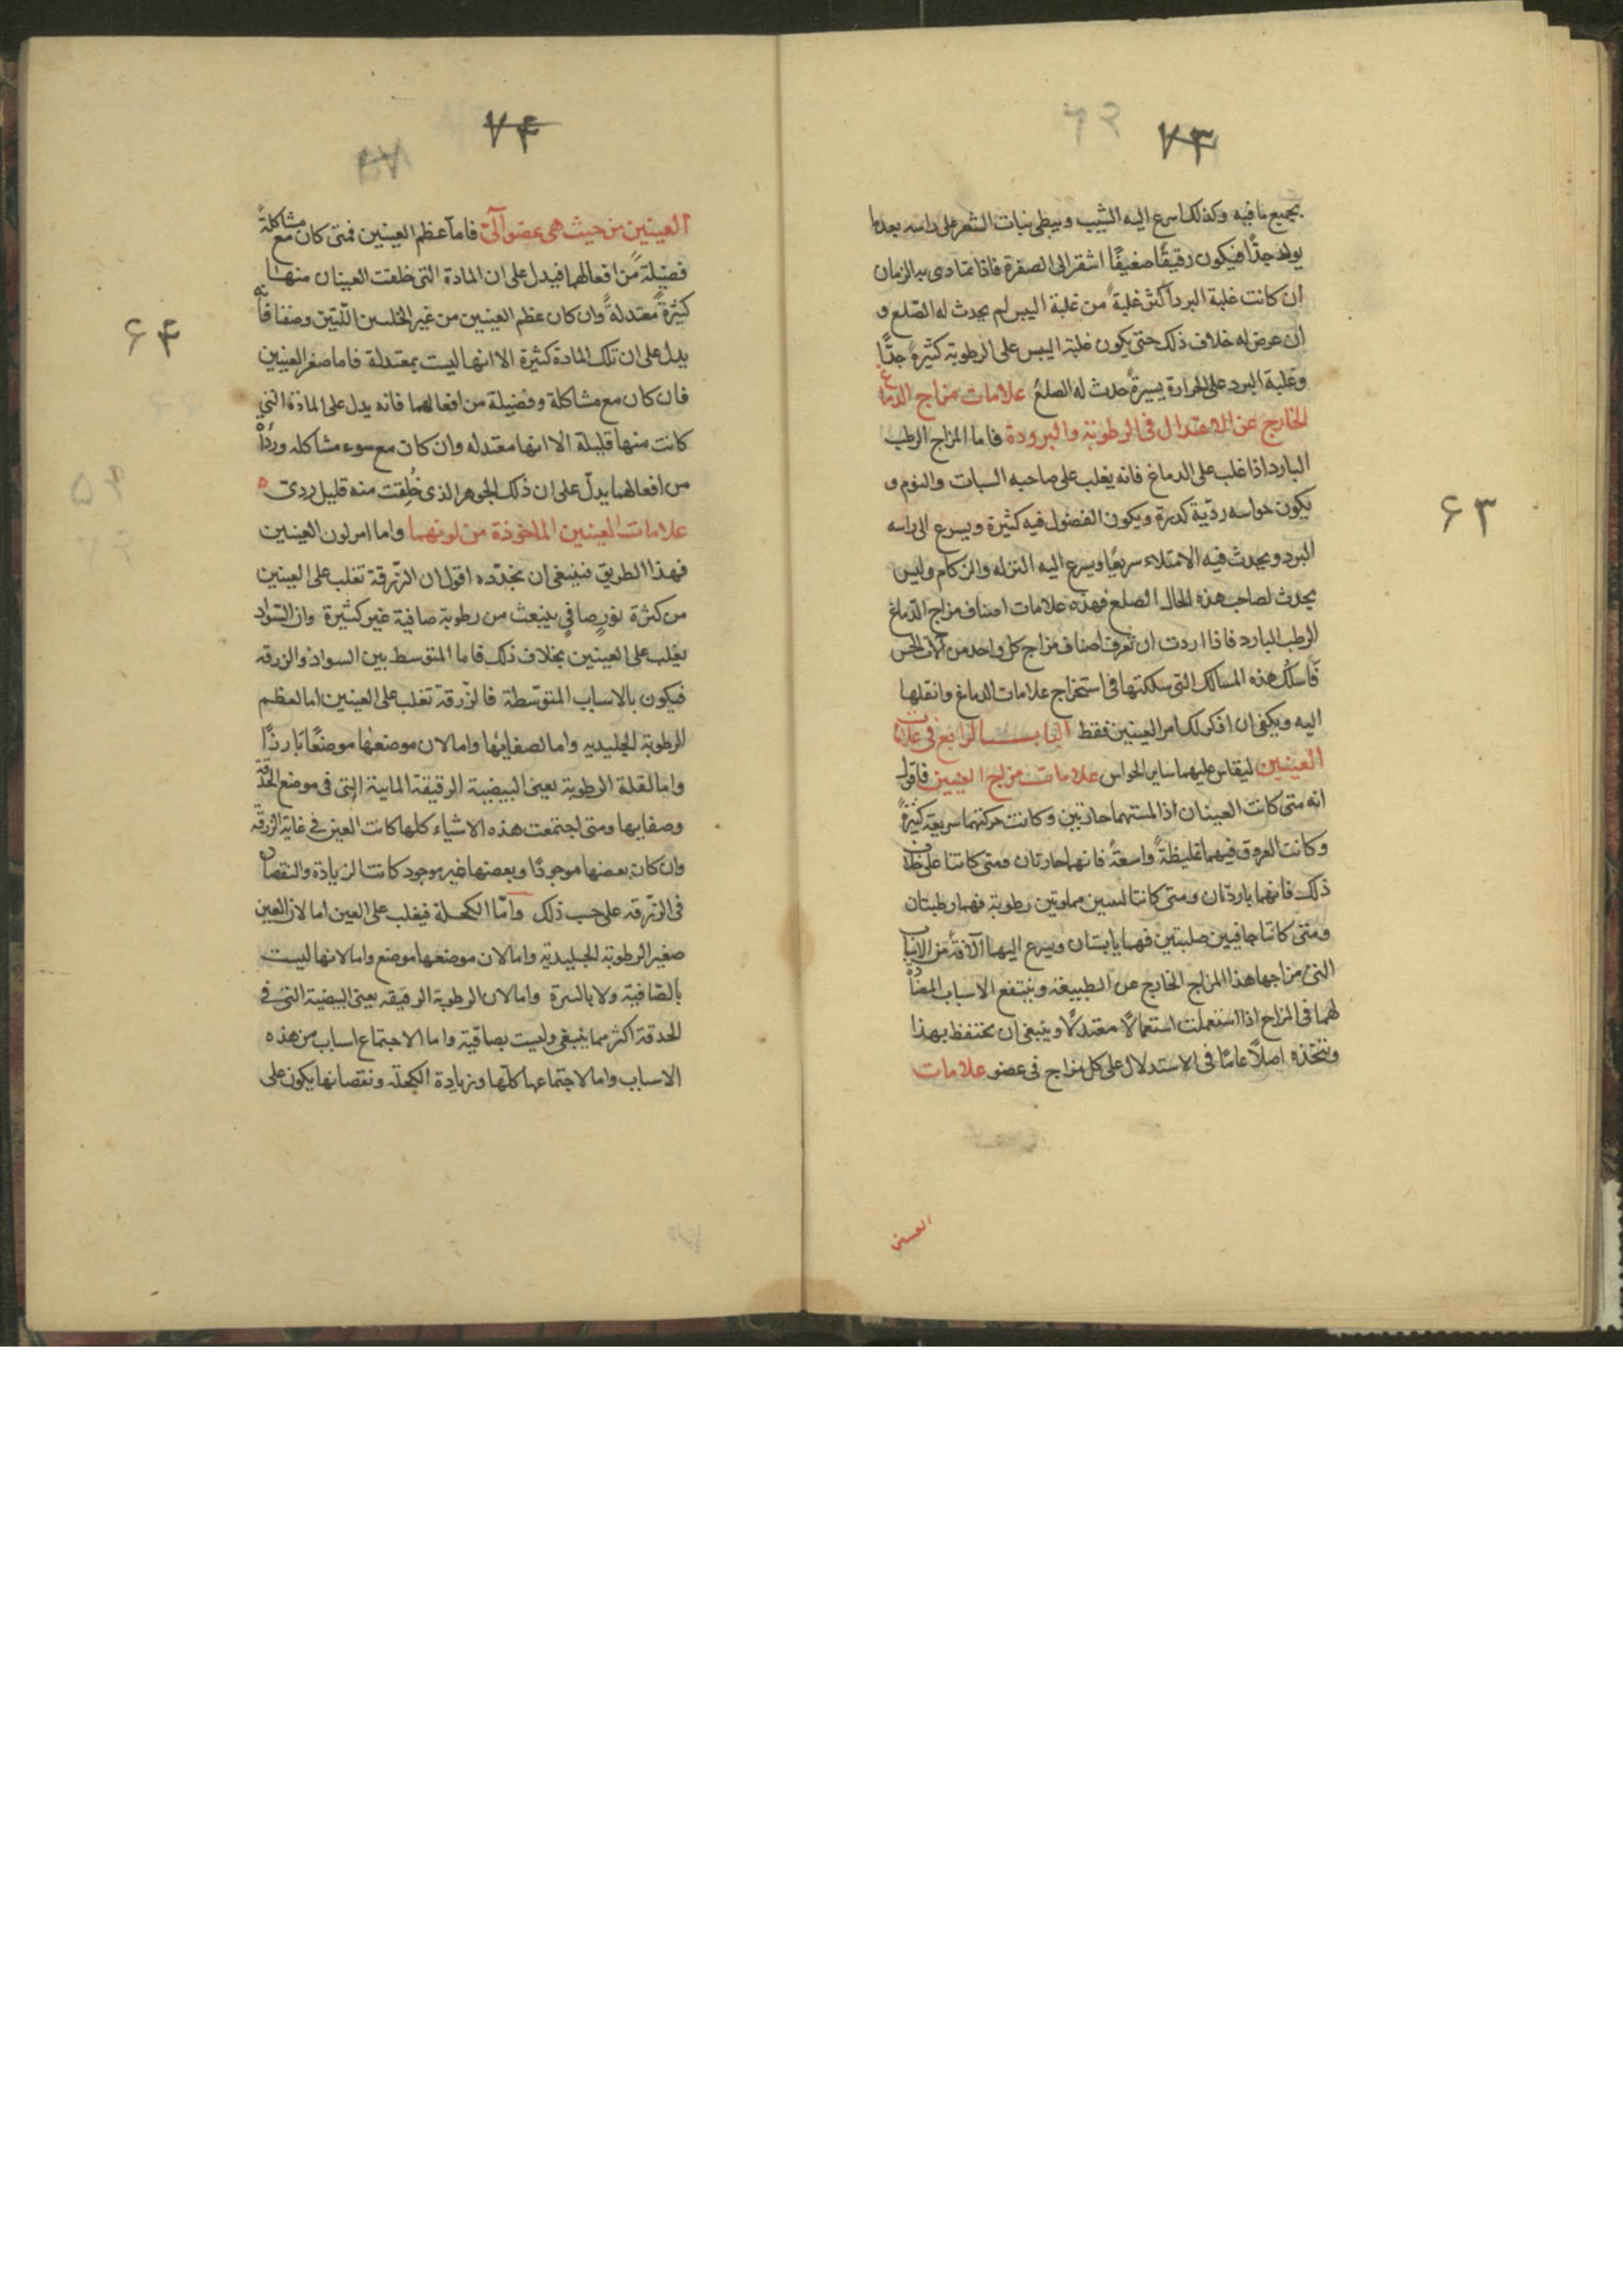 ٧٣
٦٣
بجميع ما فيه وكذلك اسرع اليه الشيب ويبطى نبات الشعر على راسه بعد ما
يولد جدًا فيكون رقيقًا ضعيفًا اشقر الى الصفرة فاذا تمادى به الزمان
ان كانت غلبة البرد اكثر غلبة من غلبة اليبس لم يحدث له الصلع و
ان عرض له خلاف ذلك حتى يكون غلبة اليبس على الرطوبة كثيرة جدًا
وغلبة البرد على الحرارة يسيرة حدث له الصلع علامات مزاج الدماغ
الخارج عن الاعتدال فى الرطوبة والبرودة فاما المزاج الرطب
البارد اذا غلب على الدماغ فانه يغلب على صاحبه السبات والنوم و
يكون حواسه رديّة كدرة ويكون الفضول فيه كثيرة ويسرع الى راسه
البرد ويحدث فيه الامتلاء سريعًا ويسرع اليه النزله والزكام وليس
يحدث لصاحب هذه الحال الصلع فهذه علامات اصناف مزاج الدماغ
الرطب البارد فاذا اردت ان تعرف اصناف مزاج كل واحد من آلات الحس
فاسلك هذه المسالك التى سلكتها فى استخراج علامات الدماغ وانقلها
اليه ويكفى ان اذكر لك امر العينين فقط الباب الرابع فى علامات
العينين ليقاس عليهما ساير الحواس علامات مزاج العينين فاقول
انه متى كانت العينان اذا لمستهما حارتين وكانت حركتهما سريعة كثيرةً
وكانت العروق فيهما غليظةً واسعةً فانهما حارتان ومتى كانتا على خلاف
ذلك فانهما باردتان ومتى كانتا لينتين مملوتين رطوبة فهما رطبتان
ومتى كانتا جافيين صلبتين فهما يابستان ويسرع اليهما الآفة من الاسباب
التى مزاجها هذا المزاج الخارج عن الطبيعة وينتفع الاسباب المضادة
لهما فى المزاج اذا استعملت استعمالًا معتدلًا وينبغى ان تحتفظ بهذا
وتتخذه اصلاً عامًا فى الاستدلال على كل مزاج فى عضو علامات
العينين
٧٤
٦٤
العينين من حيث هى عضو آلىّ فاما عظم العينين فمتى كان مع مشاكلةً
فضيلة من افعالهما فيدل على ان المادة التى خلقت العينان منها
كثيرةً معتدلةً وان كان عظم العينين من غير
يدل على ان تلك المادة كثيرة الا انها ليست بمعتدلة فاما صغر العينين
فان كان مع مشاكلة وفضيلة من افعالهما فانه يدل على المادة التى
كانت منها قليلة الا انها معتدله وان كان مع سوء مشاكله ورداءة
من افعالهما يدلّ على ان ذلك الجوهر الذى خُلقت منه قليل ردى ه
علامات العينين الماخوذة من لونهما واما امر لون العينين
فهذا الطريق فينبغى ان تحدّده اقول ان الزّرقة تغلب على العينين
من كثرة نورٍ صافىٍ ينبعث من رطوبة صافية غير كثيرة وان السّواد
يغلب على العينين بخلاف ذلك فاما المتوسط بين السواد والزرقه
فيكون بالاسباب المتوسّطة فالزّرقة تغلب على العينين اما لعظم
الرطوبة الجليديه واما لصفايها واما لان موضعها موضعًا بارزًا
واما لقلة الرطوبة يعنى البيضية الرقيقة المائية التى فى موضع الحدقة
وصفايها ومتى اجتمعت هذه الاشياء كلها كانت العين فى غاية الزرقه
وان كان بعضها موجودًا وبعضها غير موجود كانت الزيادة والنقصان
فى الزّرقه على حسب ذلك وامّا الكحلة فيغلب على العين اما لان العين
صغير الرطوبة الجليدية واما لان موضعها موضع واما لانها ليست
بالصّافية ولا واما لان الرطوبة الرقيقه يعنى البيضية التى فى
الحدقة اكثر مما ينبغى وليست بصافية واما الاجتماع اسباب من هذه
الاسباب واما لاجتماعها كلّها وزيادة الكحلة ونقصانها يكون على